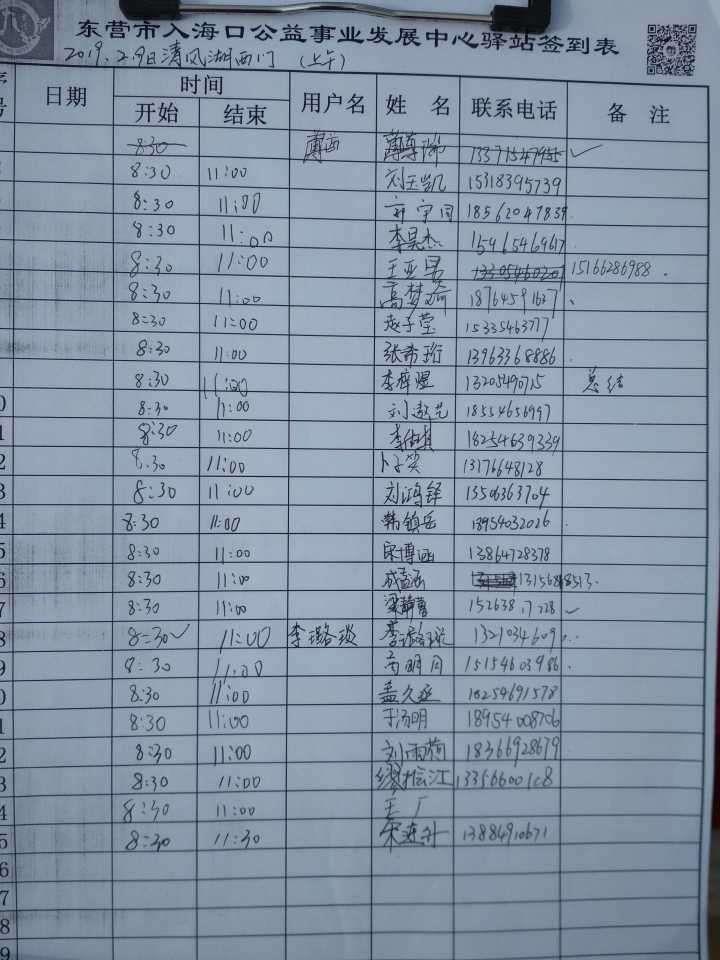 东营市入海口公益事业发展中心驿站签到表
2019.2.9日清风湖西门 (上午)
号 日期 时间 用户名 姓 名 联系电话 备 注
开始 结束
8:30 13371547955 ✓
8:30 11:00 刘玉凯 15318395739
8:30 11:00 18562047839
8:30 11:00 李昊杰 15965469617
8:30 11:00 15166286988
8:30 11:00 高梦 18764591627
8:30 11:00 赵子莹 15335463777
8:30 11:00 张希珩 13963368886
8:30 11:00 李梓煜 13205490715 总结
0 8:30 11:00 刘 18554656997
1 8:30 11:00 李 18254639339
2 8:30 11:00 卜子笑 13176648128
3 8:30 11:00 刘鸿铎 13506363704
4 8:30 11:00 韩镇岳 18954032026
5 8:30 11:00 宋博涵 13864728378
6 8:30 11:00 成
7 8:30 11:00 梁静 ✓
8 8:30 ✓ 11:00 李璐琰 李璐琰
9 8:30 11:00 高明月 15154603986
0 8:30 11:00 孟久 18254691578
1 8:30 11:00 于汤明 18954008706
2 8:30 11:00 刘雨荷 18366928679
3 8:30 11:00 缪振江
4 8:30 11:00 王厂
5 8:30 11:30 宋连升 13884910671
6
7
8
9